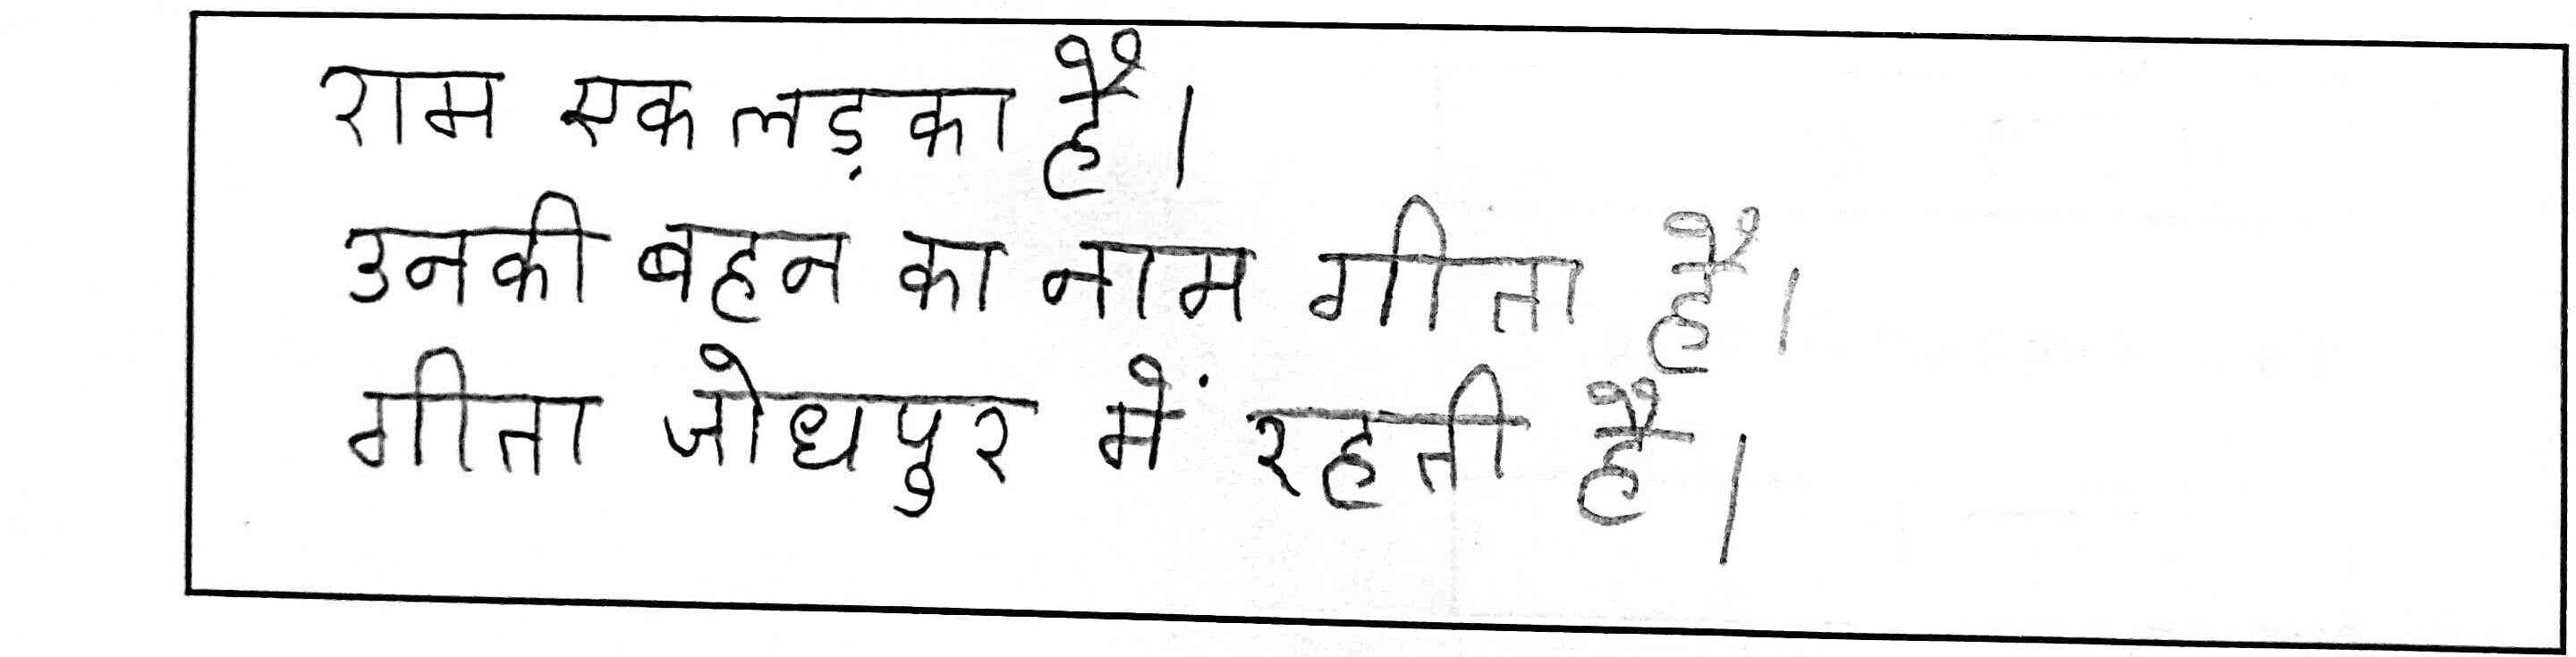 राम एक लड़का है।
उनकी बहन का नाम गीता है।
गीता जोधपुर में रहती है।